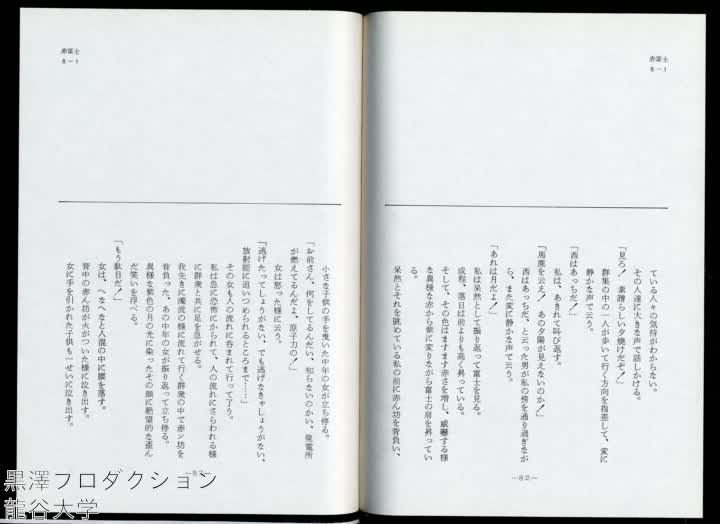 赤富士
8－1
ている人々の気持がわからない。
その人達に大きな声で話しかける。
「見ろ！　素晴らしい夕焼けだぞ！」
群集の中の一人が歩いて行く方向を指差して、変に
静かな声で云う。
「西はあっちだ！」
私は、あきれて叫び返す。
「馬鹿を云え！　あの夕陽が見えないのか！」
西はあっちだ、と云った男が私の傍を通り過ぎなが
ら、また変に静かな声で云う。
「あれは月だよ！」
私は呆然として振り返って富士を見る。
成程、落日は前よりも高く昇っている。
そして、その色はますます赤さを増し、威嚇する様
な異様な赤から紫に変りながら富士の肩を昇ってい
る。
呆然とそれを眺めている私の前に赤ん坊を背負い、
－82－
赤富士
8－1
小さな子供の手を曳いた中年の女が立ち停る。
「お前さん、何をしてるんだい、知らないのかい、発電所
が燃えてるんだよ、原子力の！」
女は怒った様に云う。
「逃げたってしょうがない、でも逃げなきゃしょうがない、
放射能に追いつめられるところまで……」
その女も人の流れに呑まれて行って了う。
私は急に恐怖にかられて、人の流れにさらわれる様
に群衆と共に足を急がせる。
我先きに濁流の様に流れて行く群衆の中で赤ン坊を
背負った、あの中年の女が振り返って立ち停る。
異様な紫色の月の光に染ったその顔に絶望的な歪ん
だ笑いを浮べる。
「もう駄目だ！」
女は、へなへなと人混の中に腰を落す。
背中の赤ん坊が火がついた様に泣き出す。
女に手を引かれた子供も一せいに泣き出す。
－83－
黒澤プロダクション
龍谷大学